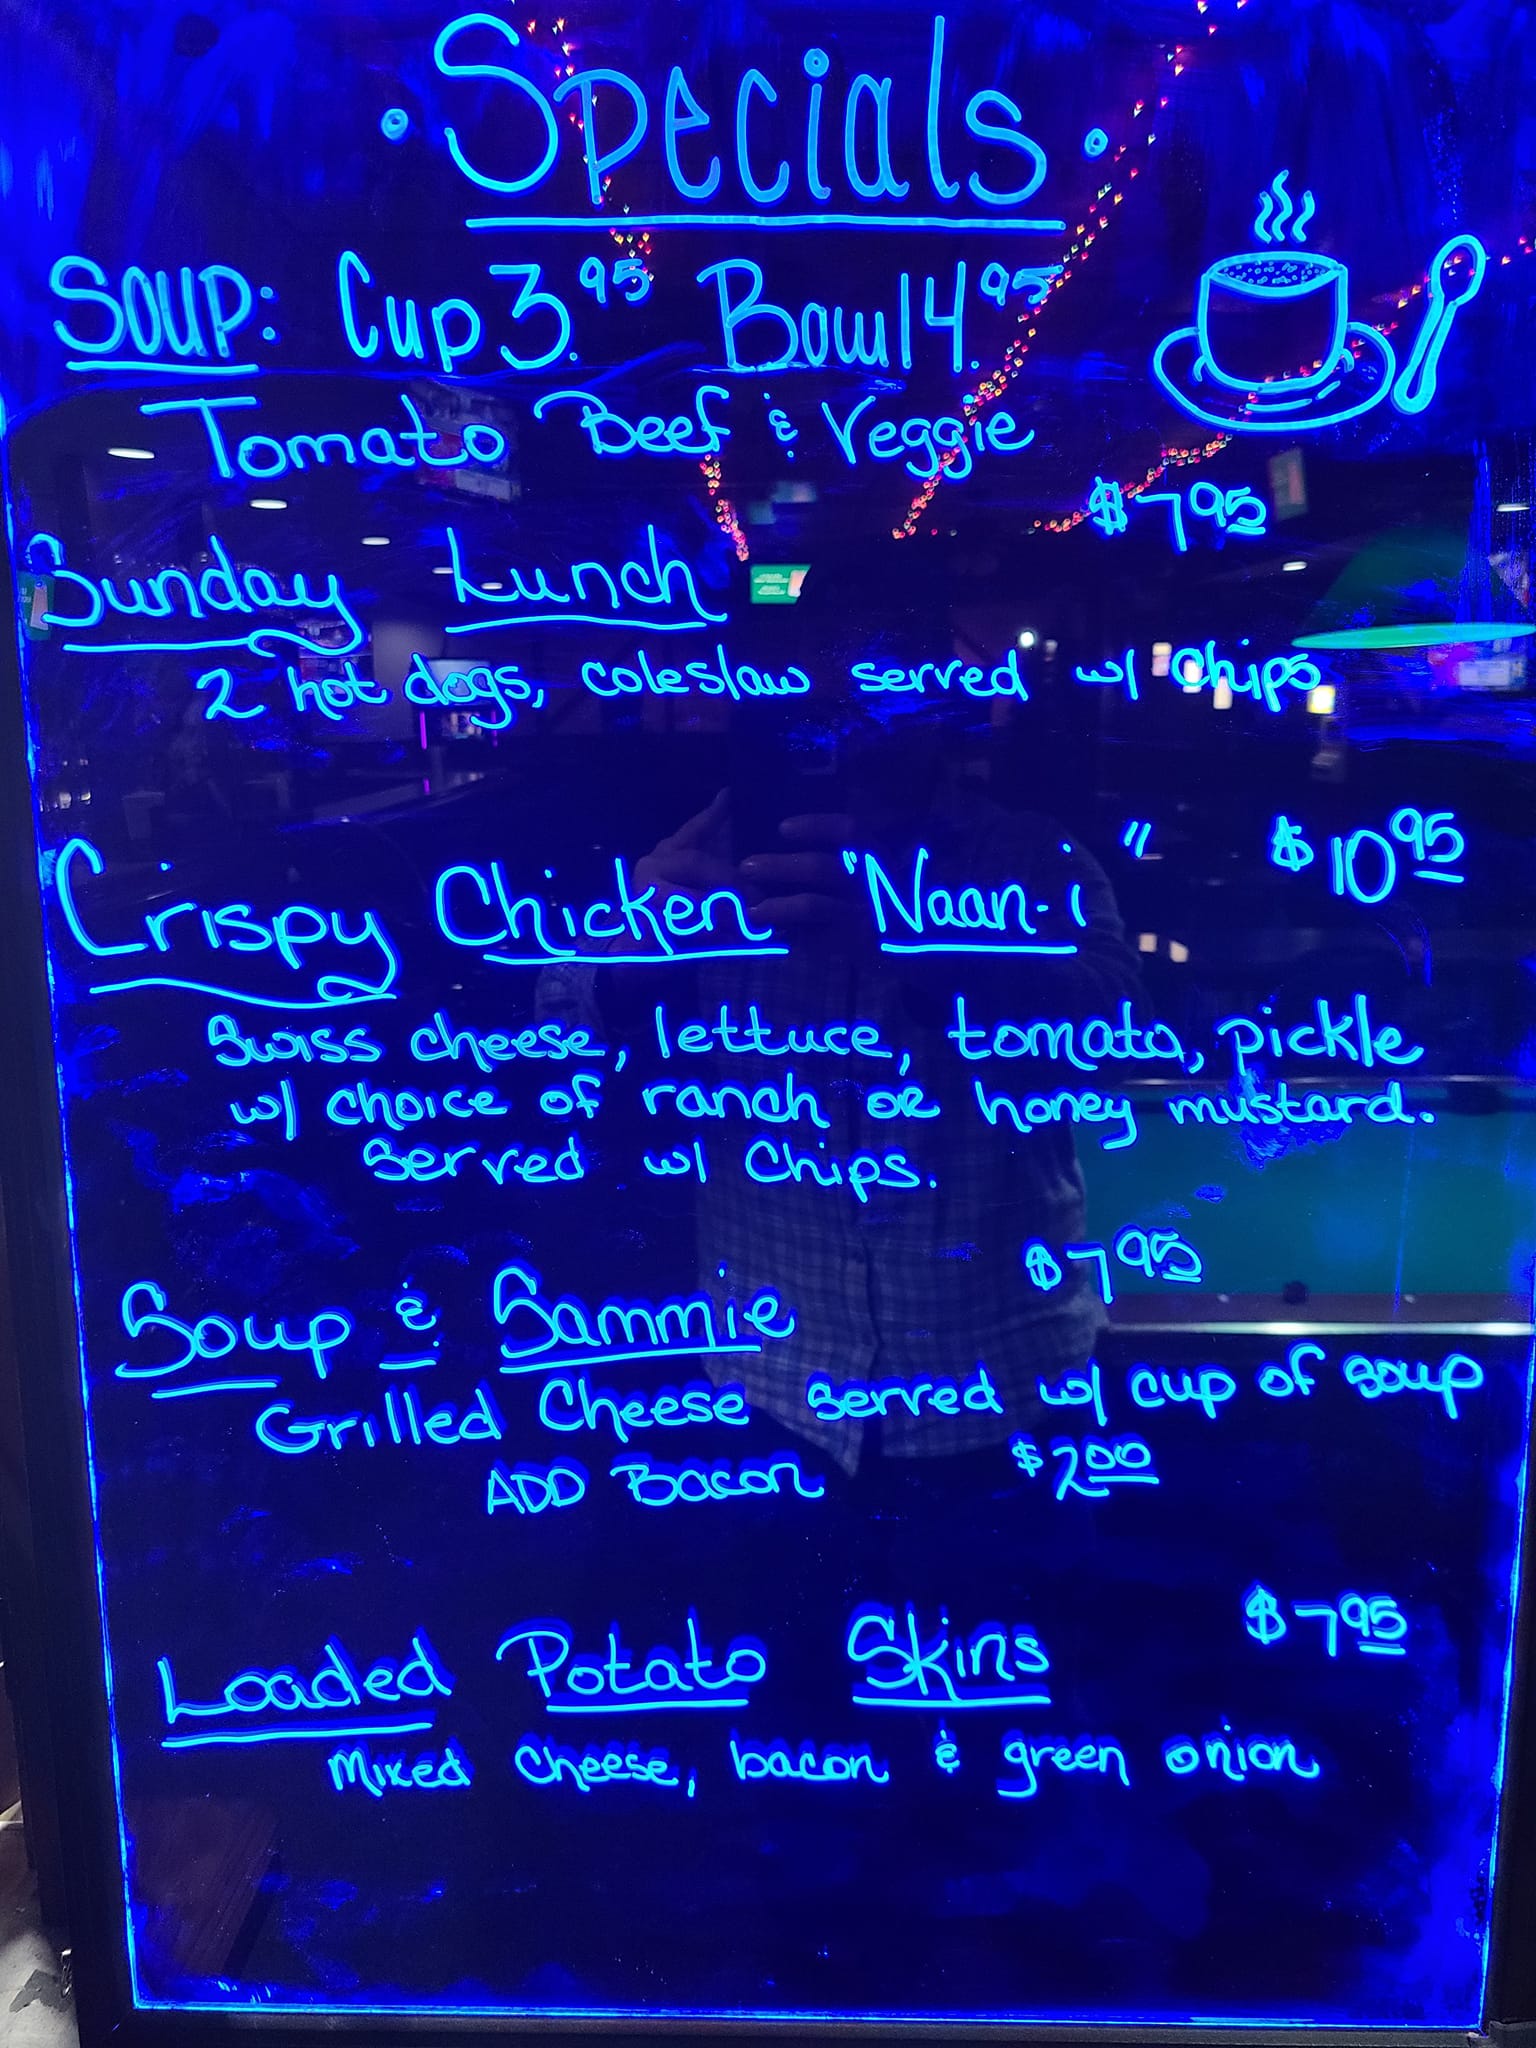 · Specials ·
SOUP: Cup 3.95 Bowl 4.95
Tomato Beef & Veggie
$7 95
Sunday Lunch
2 hot dogs, coleslaw served w/ chips
Crispy Chicken "Naan-i" $10 95
Swiss cheese, lettuce, tomato, pickle
w/ choice of ranch or honey mustard.
Served w/ Chips.
$7 95
Soup & Sammie
Grilled Cheese served w/ cup of soup
ADD Bacon $2 00
Loaded Potato Skins $7 95
Mixed cheese, bacon & green onion